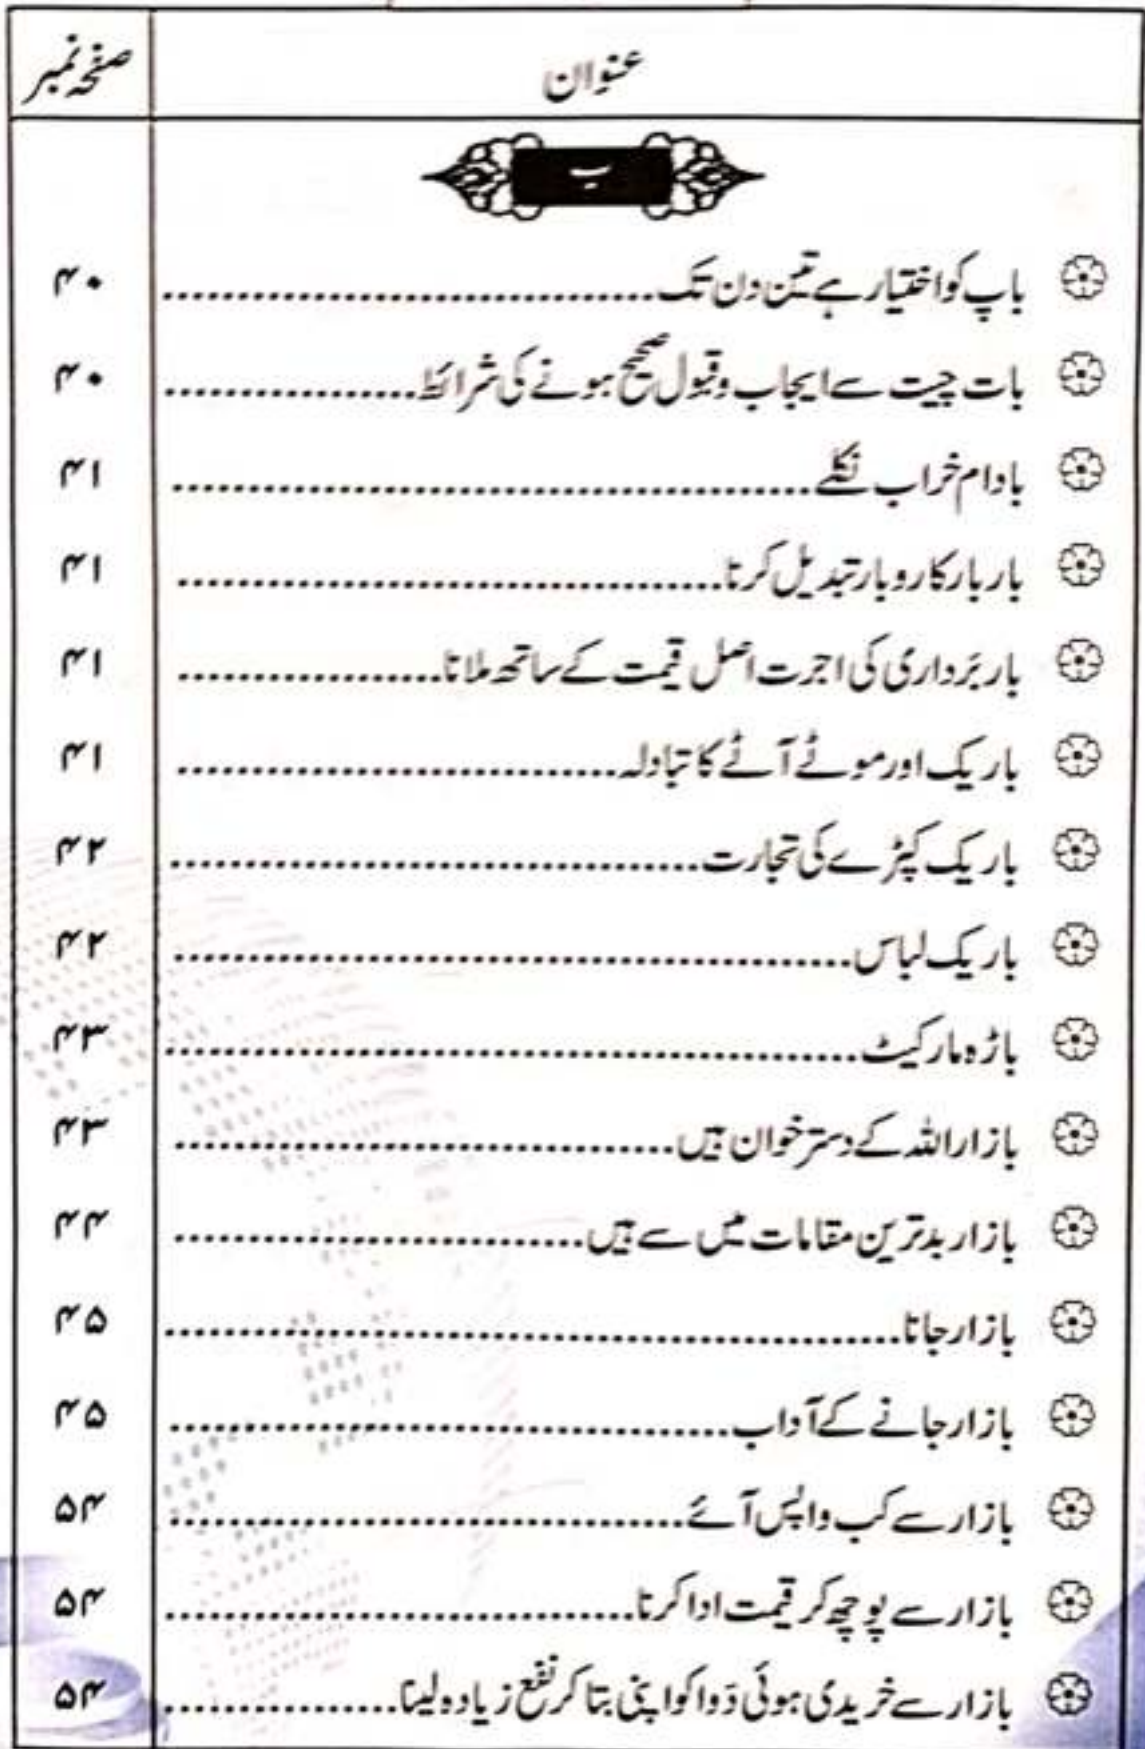 عنوان صفحہ نمبر
ب
باپ کو اختیار ہے تین دن تک ........ ۴۰
بات چیت سے ایجاب وقبول صحیح ہونے کی شرائط ........ ۴۰
بادام خراب نکلے ........ ۴۱
بار بار کاروبار تبدیل کرنا ........ ۴۱
بار بَرداری کی اجرت اصل قیمت کے ساتھ ملانا ........ ۴۱
باریک اور موٹے آٹے کا تبادلہ ........ ۴۱
باریک کپڑے کی تجارت ........ ۴۲
باریک لباس ........ ۴۲
باڑہ مارکیٹ ........ ۴۳
بازار اللہ کے دسترخوان ہیں ........ ۴۳
بازار بدترین مقامات میں سے ہیں ........ ۴۴
بازار جانا ........ ۴۵
بازار جانے کے آداب ........ ۴۵
بازار سے کب واپس آئے ........ ۵۴
بازار سے پوچھ کر قیمت ادا کرنا ........ ۵۴
بازار سے خریدی ہوئی دَوا کو اپنی بتا کر نفع زیادہ لینا ........ ۵۴